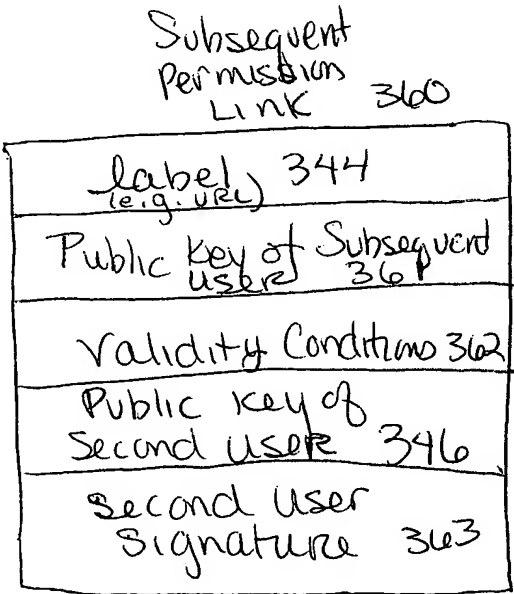 Subsequent
Permission
Link 360
label 344
(e.g. URL)
Public Key of Subsequent
user 361
Validity Conditions 362
Public Key of
Second User 346
Second User
Signature 363